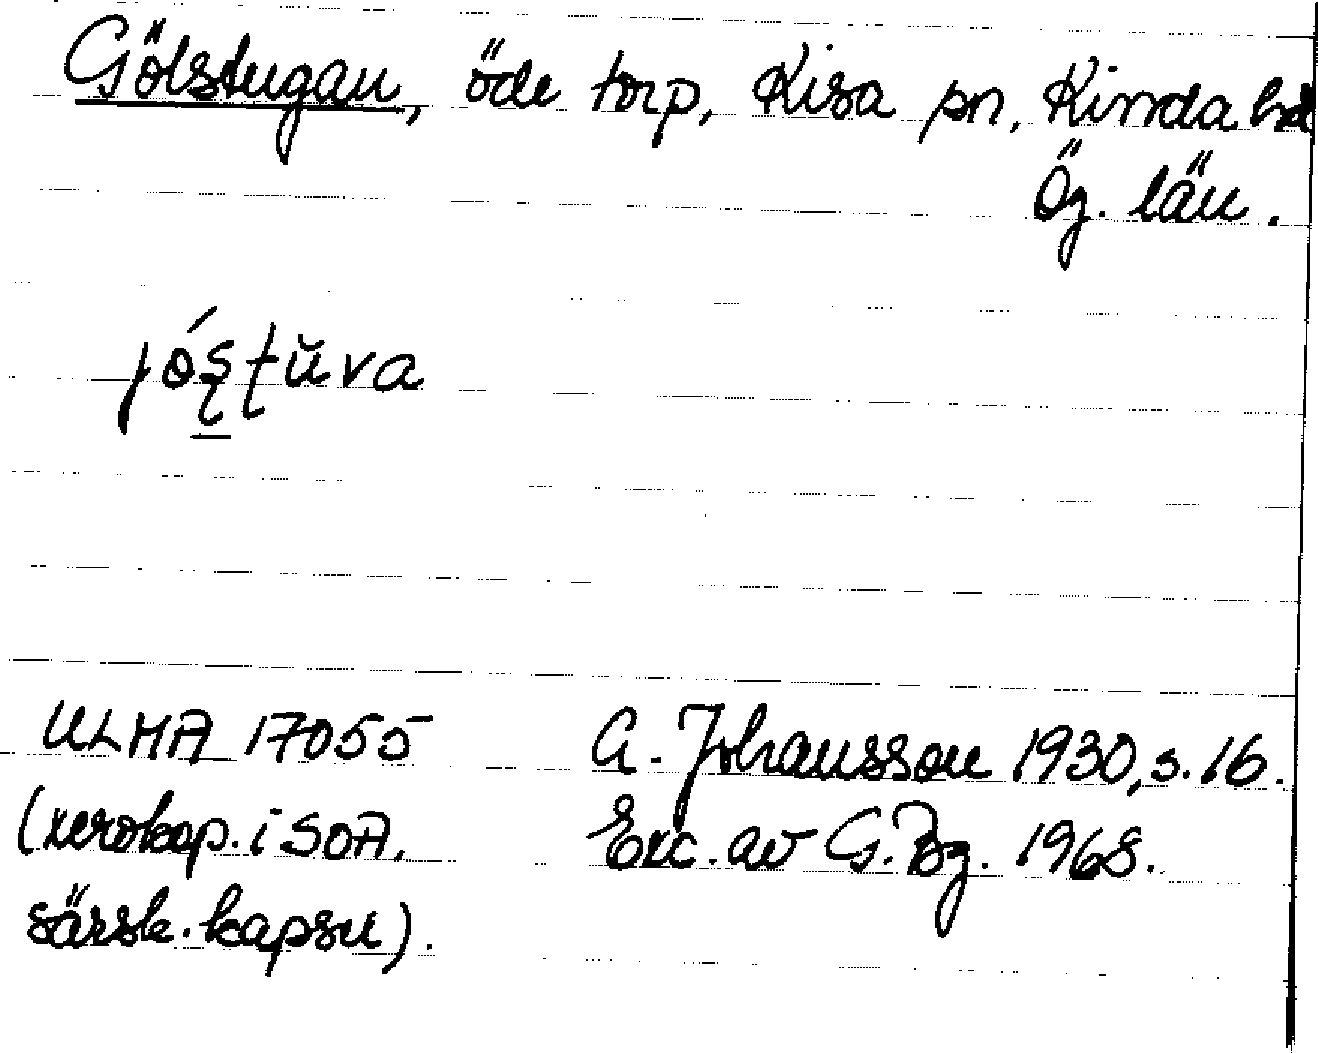 Gölstugan, öde torp, Kisa sn, Kinda hd
Ög. län.
jóştŭva
ULMA 17055 A. Johansson 1930, s. 16.
(xerokop. i SOA, Exc. av G. Bg. 1968.
särsk. kapsu).